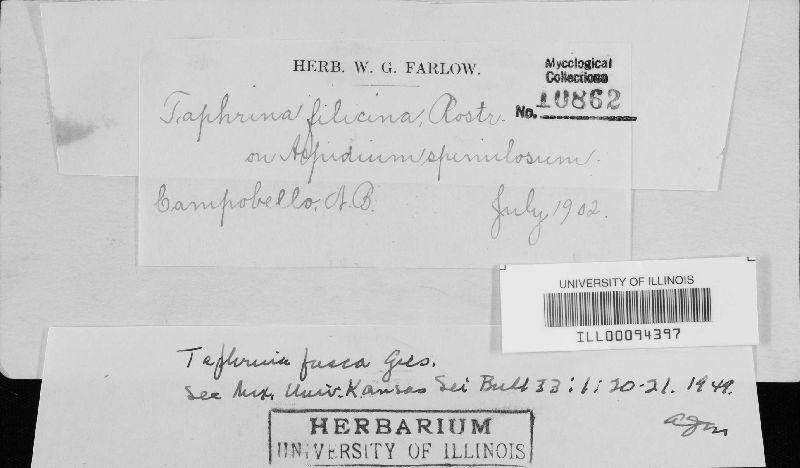 HERB. W. G. FARLOW.
Mycological
Collections
No. 10862
Taphrina filicina, Rostr.
on Aspidium spinulosum.
Campobello, N.B. July, 1902.
UNIVERSITY OF ILLINOIS
ILL00094397
Taphrina fusca Gies.
See Mix, Univ. Kansas Sci Bull 33:1:20-21. 1949.
HERBARIUM
UNIVERSITY OF ILLINOIS